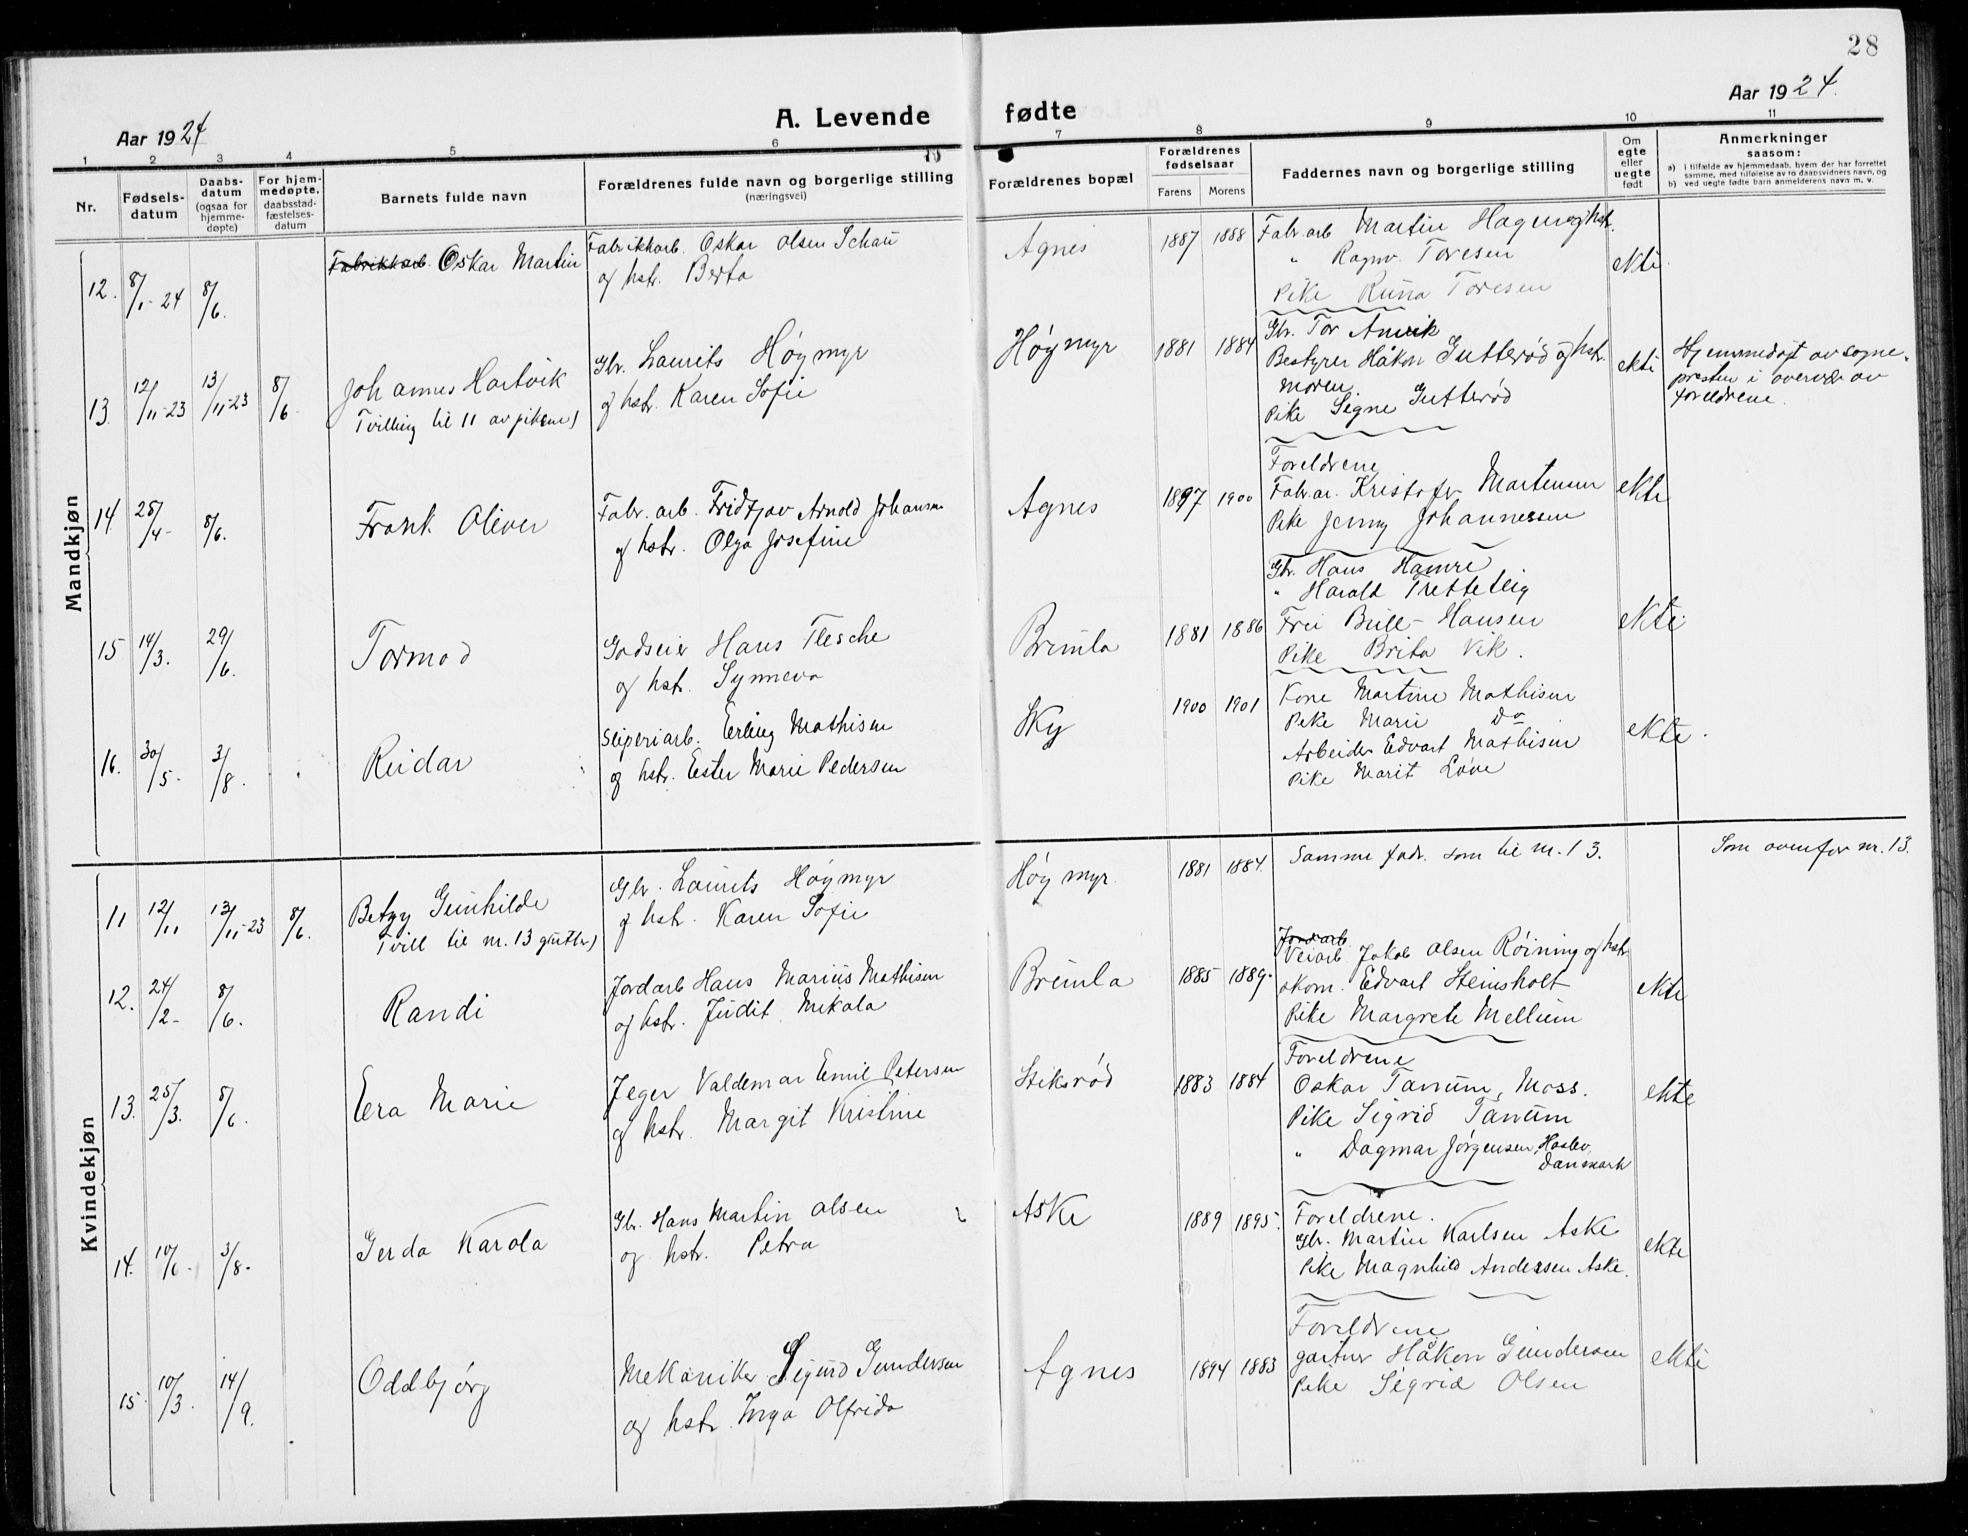 28
Aar 1924
A. Levende fødte
Aar 1924.
1 2 3 4 5 6 7 8 9 10 11
Nr.
Fødsels-
datum
Daabs-
datum
(ogsaa for
hjemme-
døpte)
For hjem-
medøpte,
daabsstad-
fæstelses-
datum
Barnets fulde navn
Forældrenes fulde navn og borgerlige stilling
(næringsvei)
Forældrenes bopæl
Forældrenes
fødselsaar
Farens Morens
Faddernes navn og borgerlige stilling
Om
egte
eller
uegte
født
Anmerkninger
saasom:
a) i tilfælde av hjemmedaab, hvem der har forrettet
samme, med tilføielse av to daabsvidners navn, og
b) ved uegte fødte barn anmelderens navn m. v.
Mandkjøn
12. 8/1-24 8/6.
Fabrikkarb. Oskar Martin
Fabrikkarb. Oskar Olsen Schau
og hstr. Berta
Agnes 1887 1888
Fabr.arb Martin Hagen og hstr.
" Ragnv. Toresen
Pike Runa Toresen
ekte.
13. 12/11-23 13/11-23 8/6-
Johannes Hartvik
Tvilling til 11 av pikene)
Gbr. Laurits Høgmyr
og hstr. Karen Sofie
Høgmyr 1881 1884
Gbr. Tor Amrik
Bestyrer Håkon Gutterød og hstr.
Moren
Pike Signe Gutterød
ekte
Hjemmedøpt av sogne-
presten i overvær av
foreldrene.
14 25/4- 8/6.
Frank Oliver
Fabr. arb. Fridtjov Arnold Johansen
og hstr. Olga Josefine
Agnes 1897 1900
Foreldrene
Fabr.ar. Kristofer Martensen
Pike Jenny Johannesen
ekte
15 14/3. 29/6.
Tormod
Godseier Hans Flesche
og hstr. Synneva
Brunla 1881 1886
Gbr. Hans Hamre
" Harald Tretteteig
Fru Bull-Hansen
Pike Brita Vik.
ekte.
16. 30/5- 3/8.
Reidar
Sliperiarb. Erling Mathisen
og hstr. Ester Marie Pedersen
Sky 1900 1901
Kone Martine Mathisen
Pike Marie do
Arbeider Edvart Mathisen
Pike Marit Løve
ekte.
Kvindekjøn
11 12/11 13/11-23 8/6.
Betzy Gunhilde
Tvill til nr. 13 gutter)
Gbr. Laurits Høgmyr
og hstr. Karen Sofie
Høgmyr. 1881 1884.
Samme fadr. som til nr. 13.
Som ovenfor nr. 13.
12. 24/2- 8/6.
Randi
Jordarb Hans Marius Mathisen
og hstr. Judit Mikala
Brunla 1885 1889.
Jordarb.
Veiarb. Jakob Olsen Røining og hstr
skom. Edvart Steinsholt
Pike Margrete Mellum
ekte
13. 25/3. 8/6.
Eera Marie
Jeger Valdemar Emil Petersen
og hstr. Margit Kristine
Stiksrød 1883 1884
Foreldrene
Oskar Tanum, Moss.
Pike Sigrid Tanum
" Dagmar Jørgensen, Haslev,
Danmark
ekte
14. 10/6- 3/8-
Gerda Karola
Gbr. Hans Martin Olsen
og hstr. Petra
Aske 1889 1895.
Foreldrene.
Gbr. Martin Karlsen Aske
Pike Magnhild Andersen Aske.
ekte
15. 10/3. 14/9.
Oddbjørg
Mekaniker Sigurd Gundersen
og hstr. Inga Olfrida
Agnes 1894 1883
Foreldrene
gartner Håkon Gundersen
Pike Sigrid Olsen
ekte